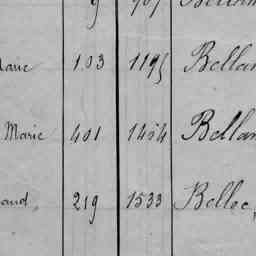 9 907 Bellam
Marie 103 1195 Bellan
Marie 401 1454 Bellan
aud, 219 1533 Bellec,